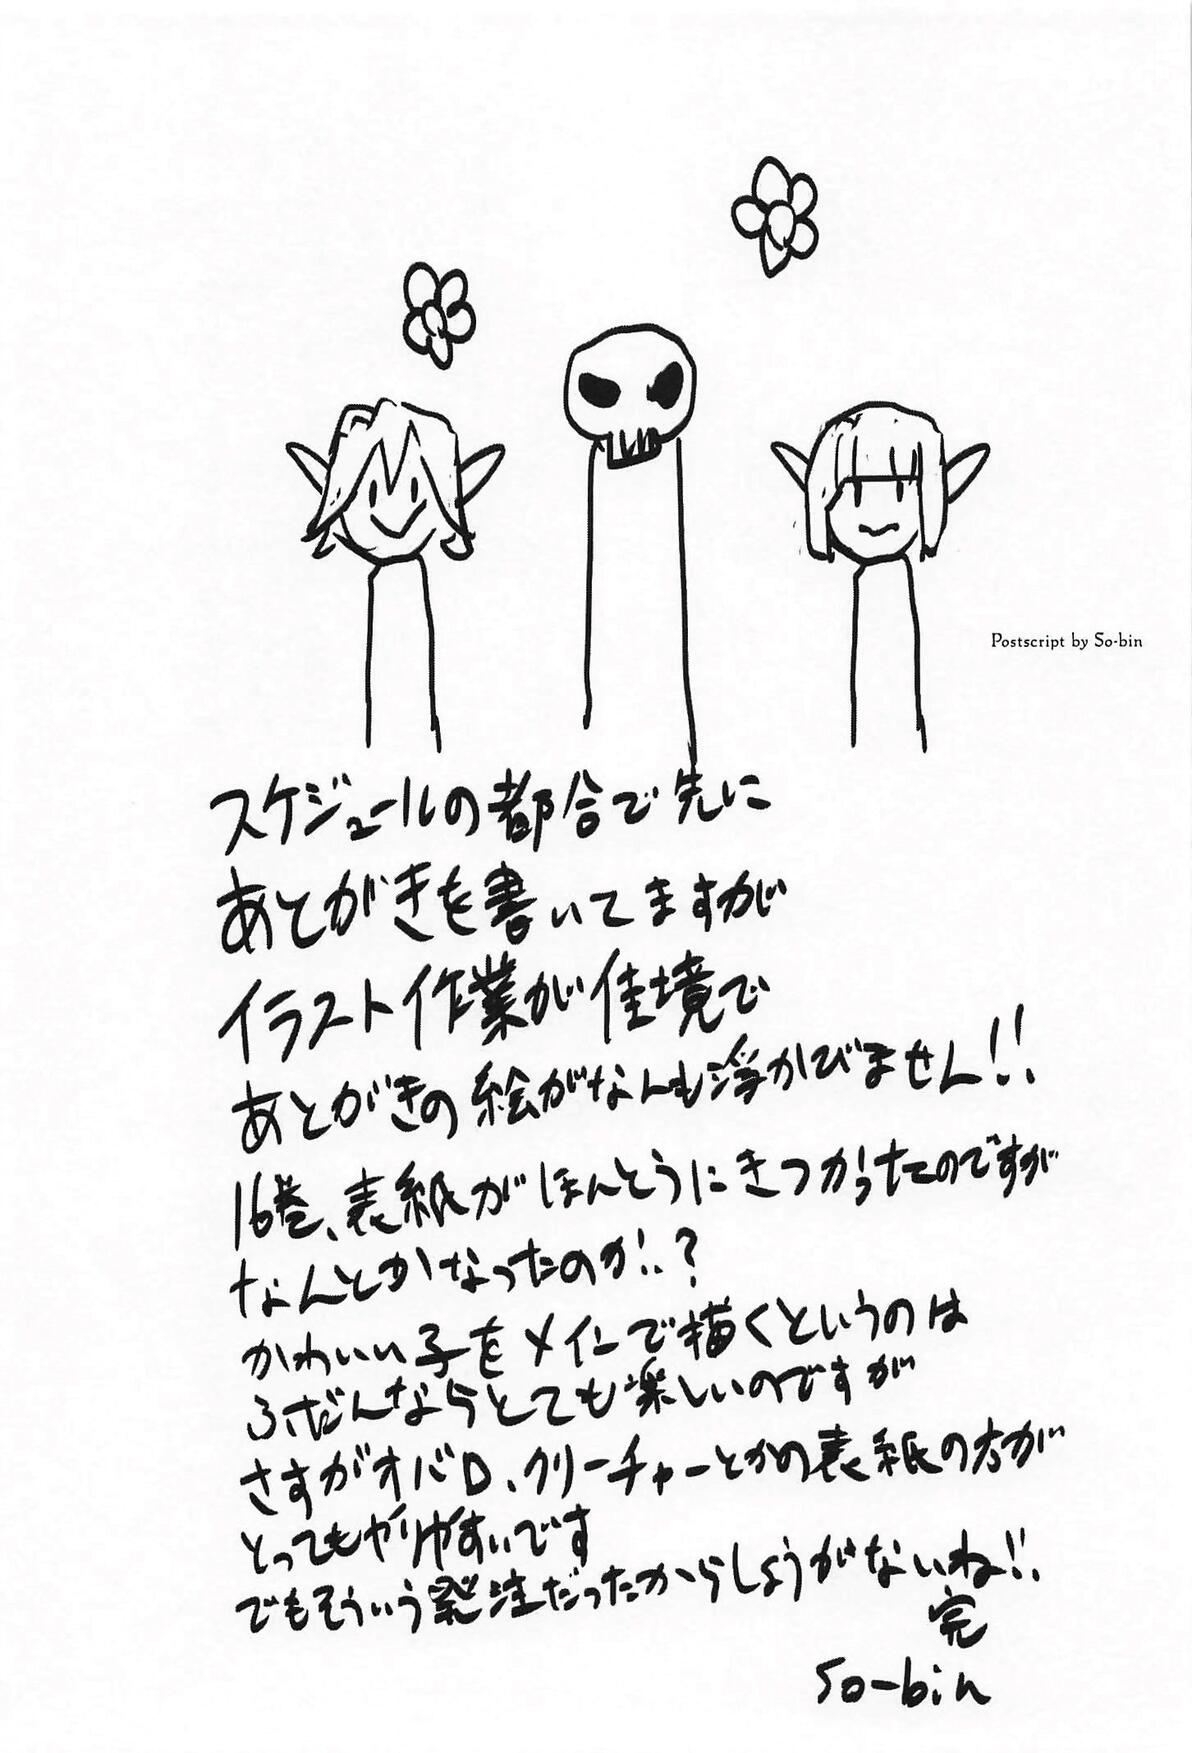 Postscript by So-bin
スケジュールの都合で先に
あとがきを書いてますが
イラスト作業が佳境で
あとがきの絵がなんも浮かびません!!
16巻、表紙がほんとうにきつかったのですが
なんとかなったのか!.?
かわいい子をメインで描くというのは
ふだんならとても楽しいのですが
さすがオバロ、クリーチャーとかの表紙の方が
とってもやりやすいです
でもそういう発注だったからしょうがないね!!
完
so-bin